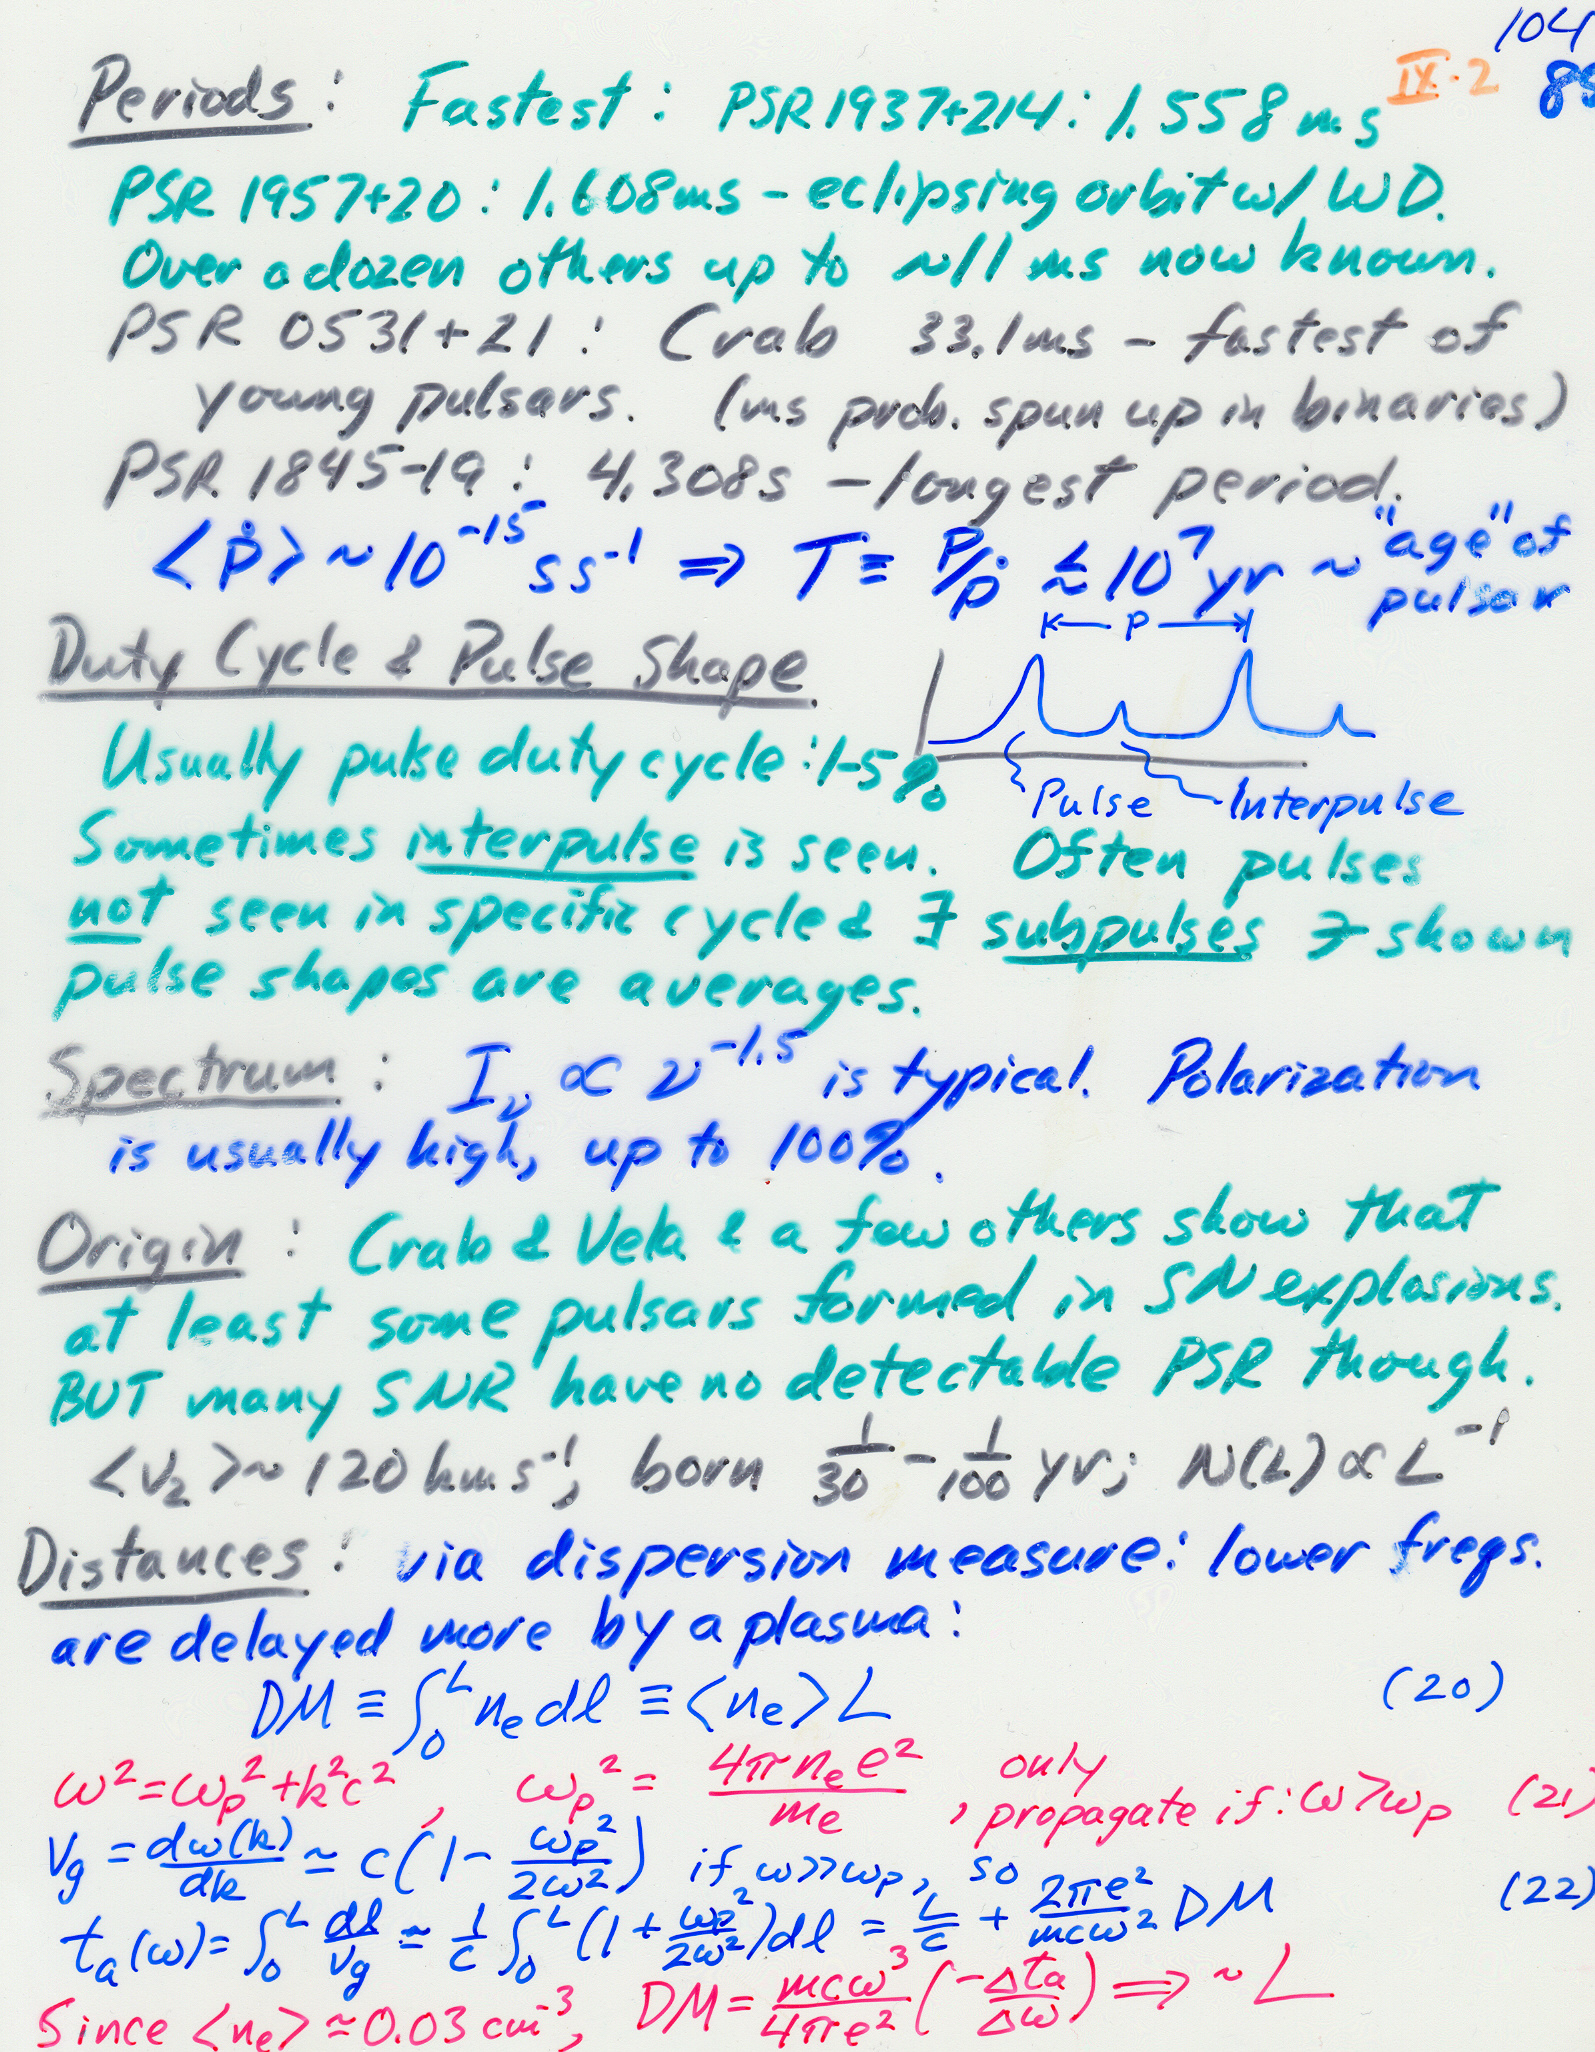 104
IX·2
Periods: Fastest: PSR 1937+214: 1.558 ms
PSR 1957+20: 1.608ms - eclipsing orbit w/ WD.
Over a dozen others up to ~11 ms now known.
PSR 0531+21: Crab 33.1ms - fastest of
young pulsars. (ms prob. spun up in binaries)
PSR 1845-19: 4.308s - longest period.
<Ṗ> ~ 10⁻¹⁵ s s⁻¹ ⇒ T ≡ P/Ṗ ≲ 10⁷ yr ~ "age" of
pulsar
|←P→|
Duty Cycle & Pulse Shape
Usually pulse duty cycle: 1-5%
Pulse Interpulse
Sometimes interpulse is seen. Often pulses
not seen in specific cycle & ∃ subpulses ∋ shown
pulse shapes are averages.
Spectrum: I_ν ∝ ν⁻¹·⁵ is typical. Polarization
is usually high, up to 100%.
Origin: Crab & Vela & a few others show that
at least some pulsars formed in SN explosions.
BUT many SNR have no detectable PSR though.
<v_z> ~ 120 km s⁻¹, born 1/30 - 1/100 yr; N(L) ∝ L⁻¹
Distances: via dispersion measure: lower freqs.
are delayed more by a plasma:
DM ≡ ∫₀ᴸ nₑ dl ≡ <nₑ> L (20)
ω² = ω_p² + k²c², ω_p² = 4π nₑ e² / mₑ, only propagate if: ω > ω_p (21)
V_g = dω(k)/dk ≃ c(1 - ω_p²/2ω²) if ω >> ω_p, so (22)
t_a(ω) = ∫₀ᴸ dl/V_g ≃ 1/c ∫₀ᴸ (1 + ω_p²/2ω²) dl = L/c + 2πe²/mcω² DM
Since <nₑ> ≃ 0.03 cm⁻³, DM = mcω³/4πe² (-Δt_a/Δω) ⟹ ~ L